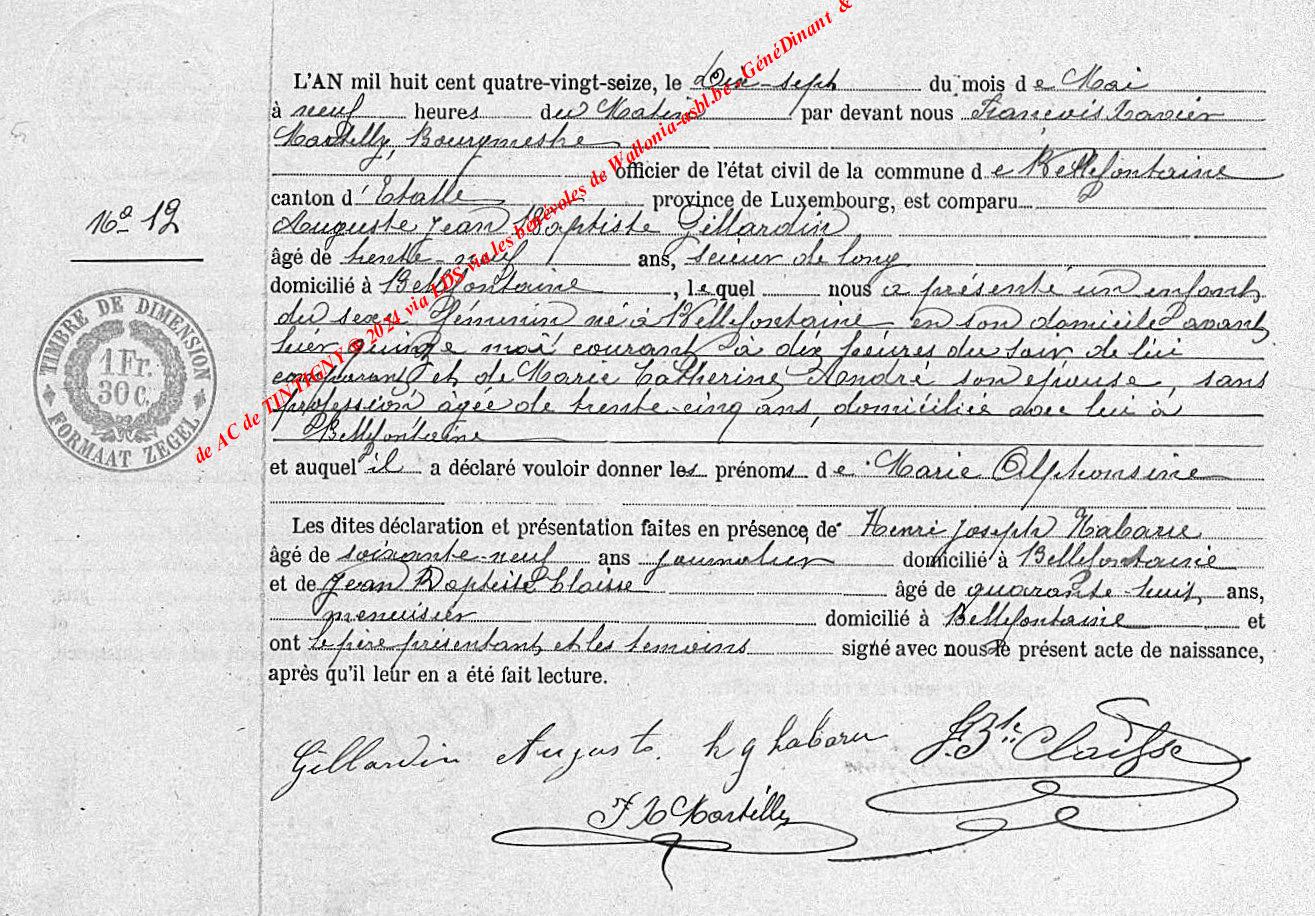 L'AN mil huit cent quatre-vingt-seize, le dix-sept du mois de Mai
à neuf heures du Matin par devant nous François Xavier
Martilly, Bourgmestre
officier de l'état civil de la commune de Bellefontaine
canton d'Etalle province de Luxembourg, est comparu
Auguste Jean Baptiste Gillardin
âgé de trente-neuf ans, scieur de long
domicilié à Bellefontaine, lequel nous a présenté un enfant
du sexe Féminin né à Bellefontaine, en son domicile avant
hier quinze mai courant à dix heures du soir de lui
comparant et de Marie Catherine André son épouse, sans
profession âgée de trente-cinq ans, domiciliée avec lui à
Bellefontaine
et auquel il a déclaré vouloir donner les prénoms de Marie Alphonsine
Les dites déclaration et présentation faites en présence de Henri Joseph Habaru
âgé de soixante-neuf ans journalier domicilié à Bellefontaine
et de Jean Baptiste Claisse âgé de quarante-huit ans,
menuisier domicilié à Bellefontaine et
ont le père présentant et les témoins signé avec nous le présent acte de naissance,
après qu'il leur en a été fait lecture.
Gillardin Auguste. h j habaru J. Bte Claisse
F X Martilly
No 12
TIMBRE DE DIMENSION
1 Fr.
30 c.
FORMAAT ZEGEL
de AC de TINTIGNY @ 2024 via FDS via les bénévoles de Wallonia-asbl.be - GénéDinant &